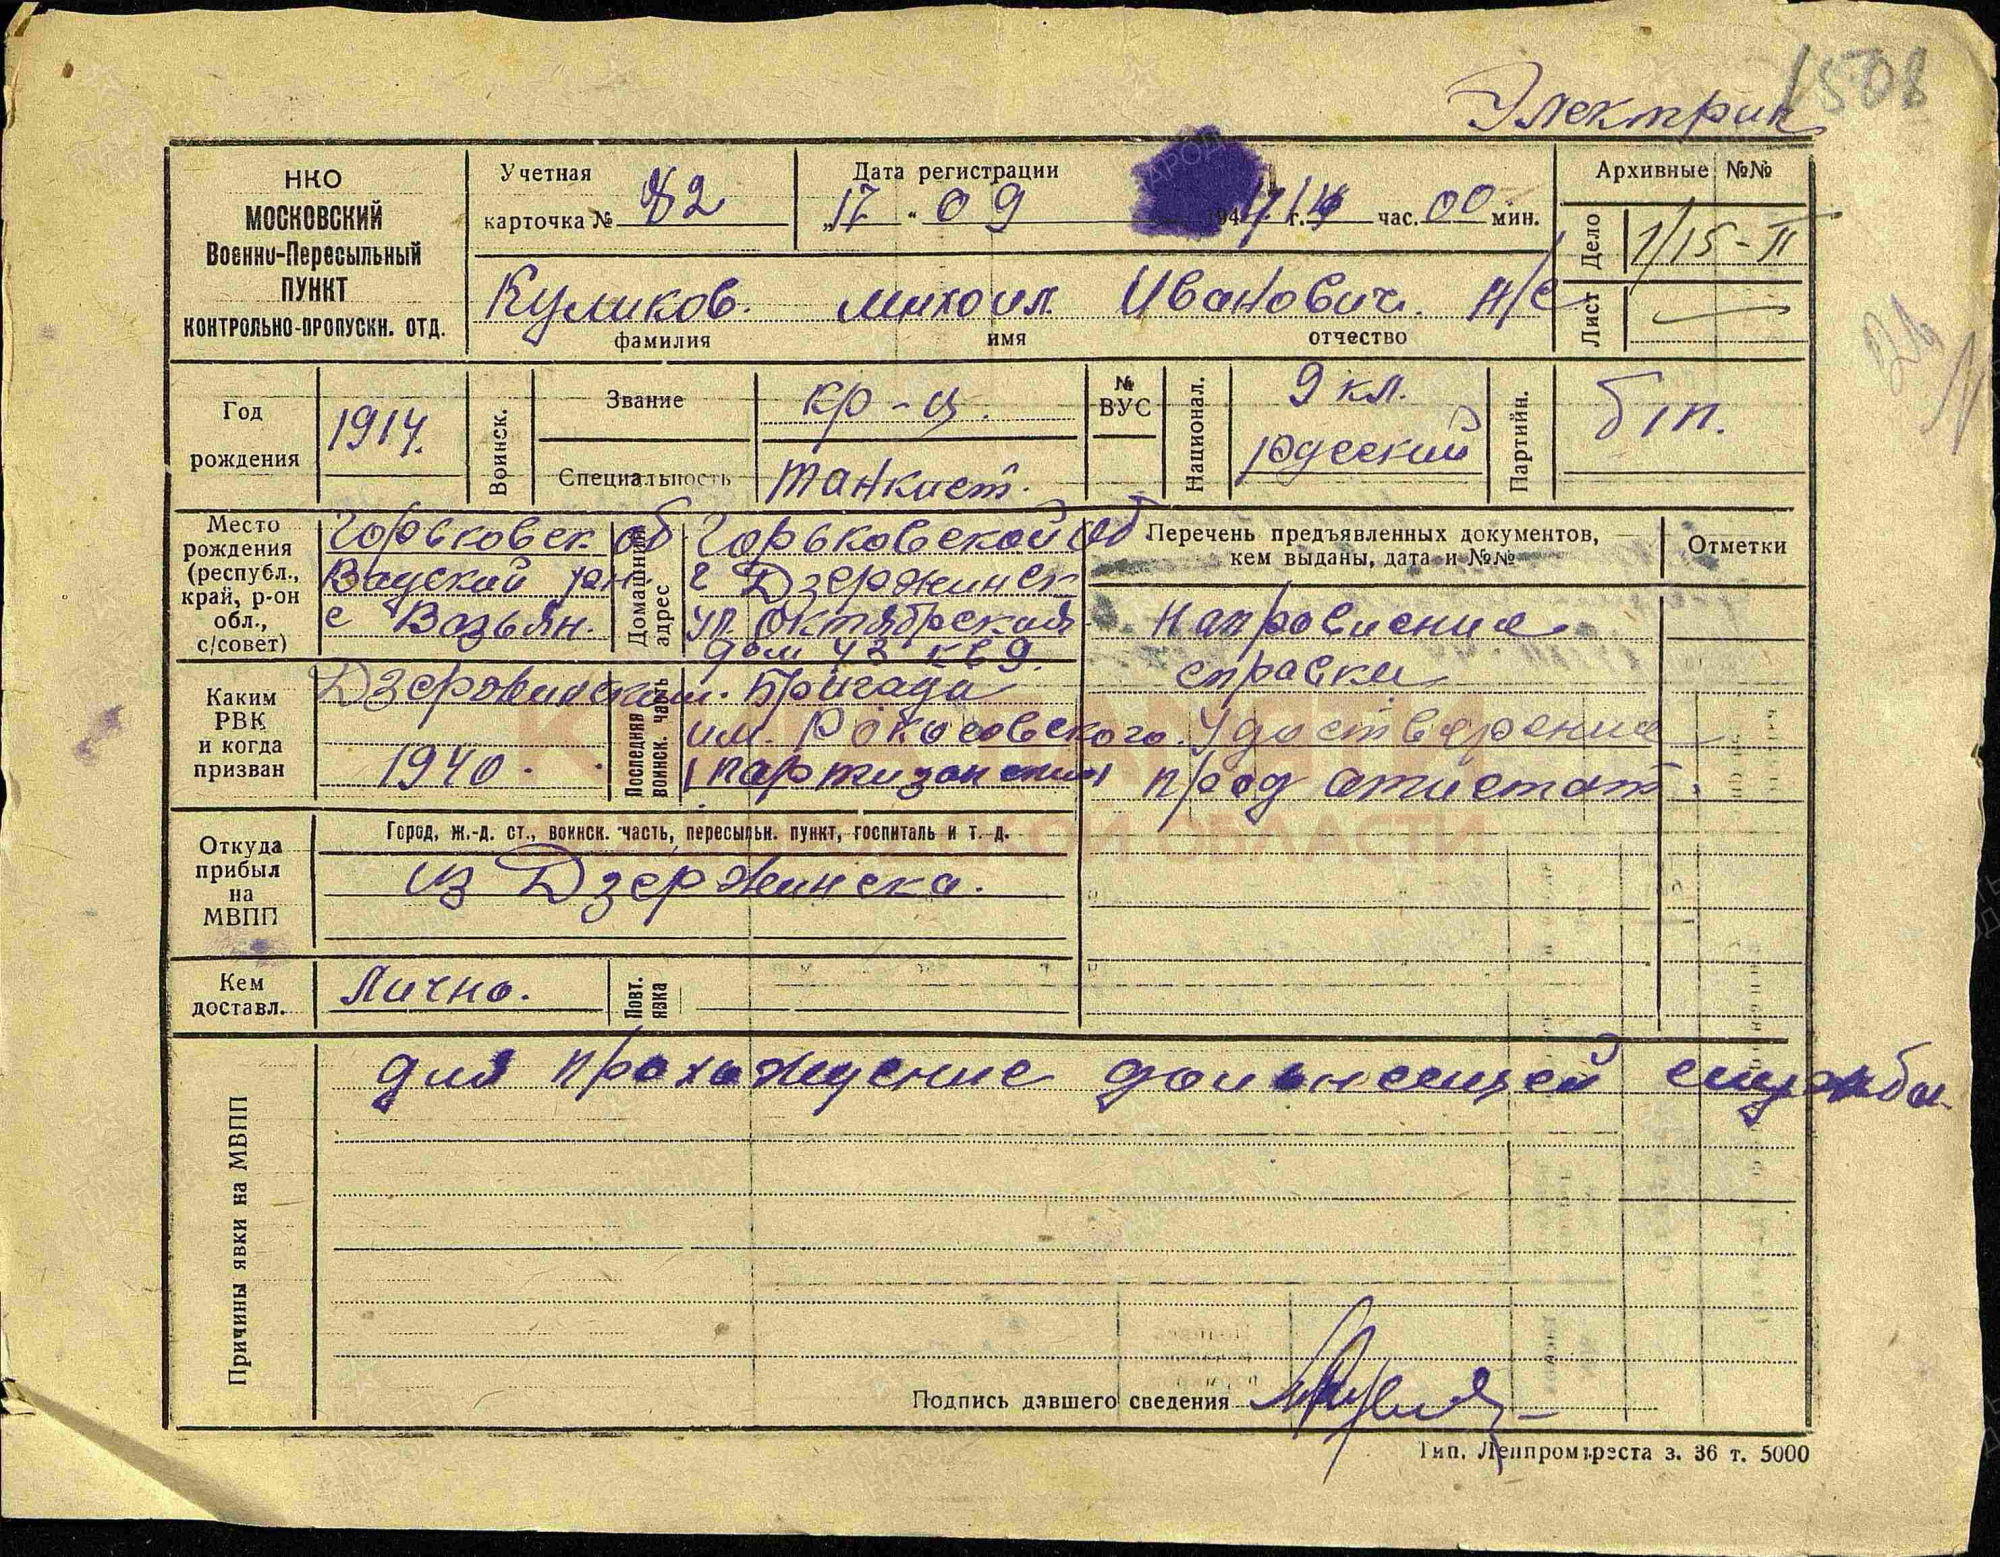 1508
Электрик
НКО
МОСКОВСКИЙ
Военно-Пересыльный
ПУНКТ
КОНТРОЛЬНО-ПРОПУСКН. ОТД.
Учетная
карточка № 82
Дата регистрации
„17 " 09 194 г. час. 00 мин.
Архивные №№
Дело 1/15-II
Лист
Куликов. михаил Иванович. Н/С
фамилия имя отчество
Год
рождения
1914.
Воинск.
Звание
кр-ц.
Специальность
танкист.
№
ВУС
Национал.
9 кл.
русский
Партийн.
б/п.
Место
рождения
(республ.,
край, р-он
обл.,
с/совет)
Горьковск об
Вадский рн.
с Возьян.
Домашний
адрес
Горьковской об
г Дзержинск
ул. Октябрьская
дом 43 кв 9.
Перечень предъявленных документов,
кем выданы, дата и №№
Отметки
Напровление
справки
Удостверение
прод атистат
Каким
РВК
и когда
призван
Дзержинским.
1940.
Последняя
воинск. часть
Бригада
им. Рокосовского.
(партизанский)
Откуда
прибыл
на
МВПП
Город, ж.-д. ст., воинск. часть, пересыльн. пункт, госпиталь и т. д.
из Дзержинска.
Кем
доставл.
Лично.
Повт.
явка
Причины явки на МВПП
для прохождение дольнейшей службы
Подпись давшего сведения
Тип. Ленпромтреста з. 36 т. 5000